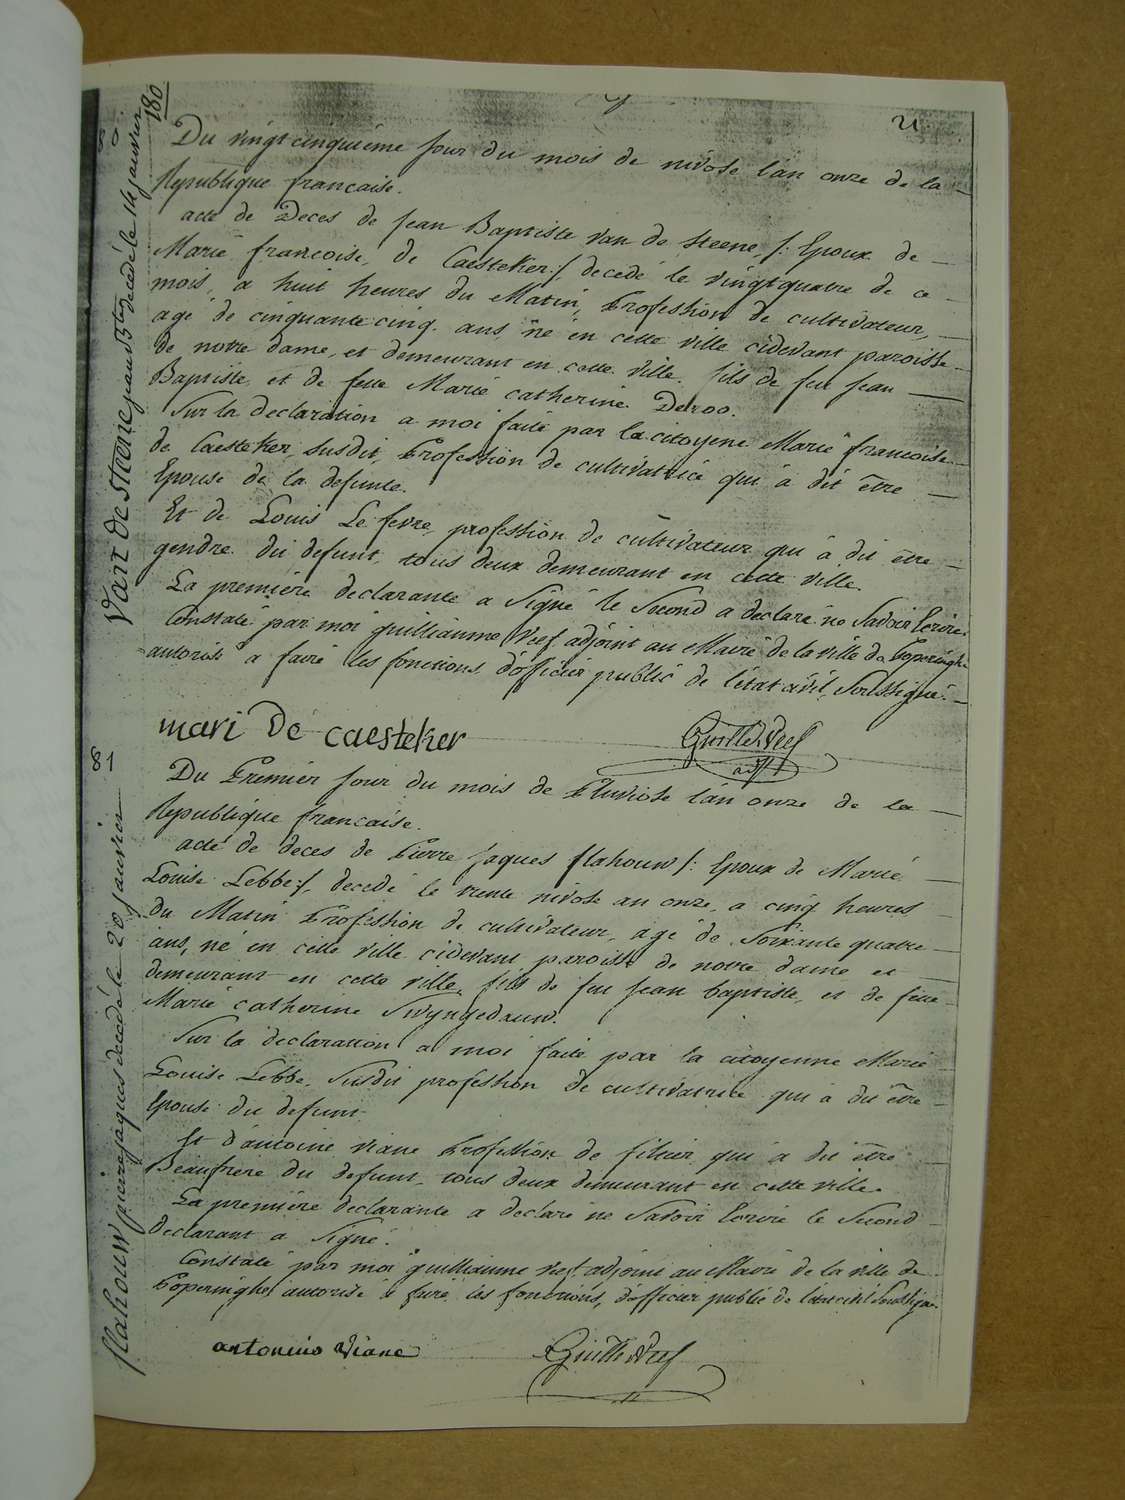 21.
180
80
Van De Steene jean Bte decedé le 14 janvier
Du vingt cinquieme jour du mois de nivose l'an onze de la
Republique francaise.
acte de Deces de Jean Baptiste Van de Steene /: Epoux de
Marie francoise, de Caesteker :/ decedé le vingt quatre de ce
mois, a huit heures du Matin, Profession de cultivateur,
agé de cinquante cinq ans, né en cette ville cidevant paroisse
de notre dame, et demeurant en cette ville, fils de feu Jean
Baptiste, et de feue Marie catherine Deroo.
Sur la declaration a moi faite par la citoyene Marie francoise
de Caesteker, susdit, Profession de cultivatrice qui a dit être
Epouse de la defunte.
Et de Louis Le fevre, profession de cultivateur qui a dit être
gendre du defunt, tous deux demeurant en cette ville.
La premiere declarante a Signé le Second a declaré ne Savoir Ecrire.
Constaté par moi guilliaume Veef adjoint au Maire de la ville de Poperinghe
autorisé a faire les fonctions d'officier public de l'état civil, Soussigné.
mari De caesteker
Guille Veef
adjt
81
flahouw pierre jaques decedé le 20 janvier
Du Premier jour du mois de Pluviose l'an onze de la
Republique francaise.
acte de deces de Pierre Jaques flahouw /: Epoux de Marie
Louise Lebbe :/, decedé le trente nivose an onze, a cinq heures
du Matin Profession de cultivateur, agé de Soixante quatre
ans, né en cette ville cidevant paroisse de notre dame et
demeurant en cette ville, fils de feu Jean baptiste, et de feue
Marie catherine Swyngedauw.
Sur la declaration a moi faite par la citoyenne Marie
Louise Lebbe, Susdit profession de cultivatrice qui a dit être
Epouse du defunt
Et d'antoine viane Profession de filtier qui a dit être
Beaufrere du defunt, tous deux demeurant en cette ville.
La premiere declarante a declaré ne Savoir Ecrire le Second
declarant a Signé.
Constaté par moi guilliaume veef adjoint au Maire de la ville de
Poperinghe autorisé a faire les fonctions, d'officier public de l'état civil Soussigné.
antonius Viane
Guille Veef